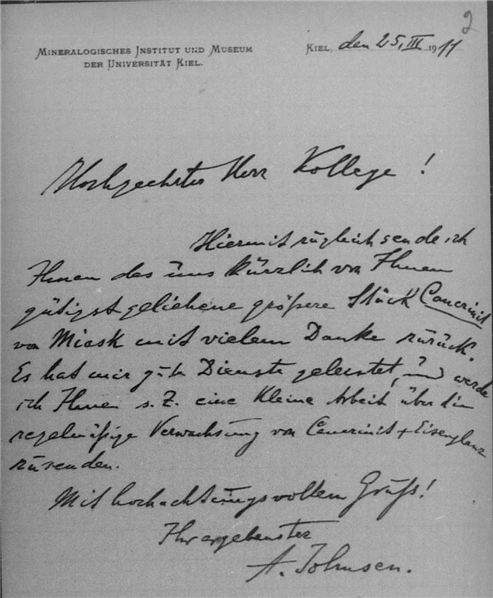 2
MINERALOGISCHES INSTITUT UND MUSEUM
DER UNIVERSITÄT KIEL.
KIEL, den 25. III. 1911
Hochgeehrter Herr Kollege!
Hiermit zugleich sende ich
Ihnen das uns kürzlich von Ihnen
gütigst geliehene größere Stück Cancrinit
von Miask mit vielem Danke zurück.
Es hat mir gute Dienste geleistet, und werde
ich Ihnen s. Z. eine kleine Arbeit über die
regelmäßige Verwachsung von Cancrinit + Eisenglanz
zusenden.
Mit hochachtungsvollem Gruß!
Ihr ergebenster
A. Johnsen.